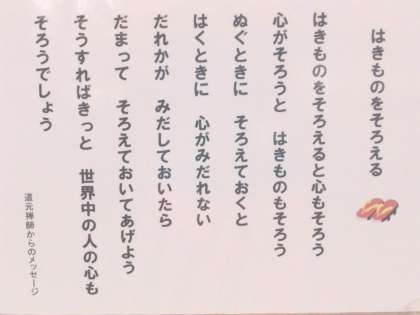 はきものをそろえる
はきものをそろえると心もそろう
心がそろうと　はきものもそろう
ぬぐときに　そろえておくと
はくときに　心がみだれない
だれかが　みだしておいたら
だまって　そろえておいてあげよう
そうすればきっと　世界中の人の心も
そろうでしょう
道元禅師からのメッセージ